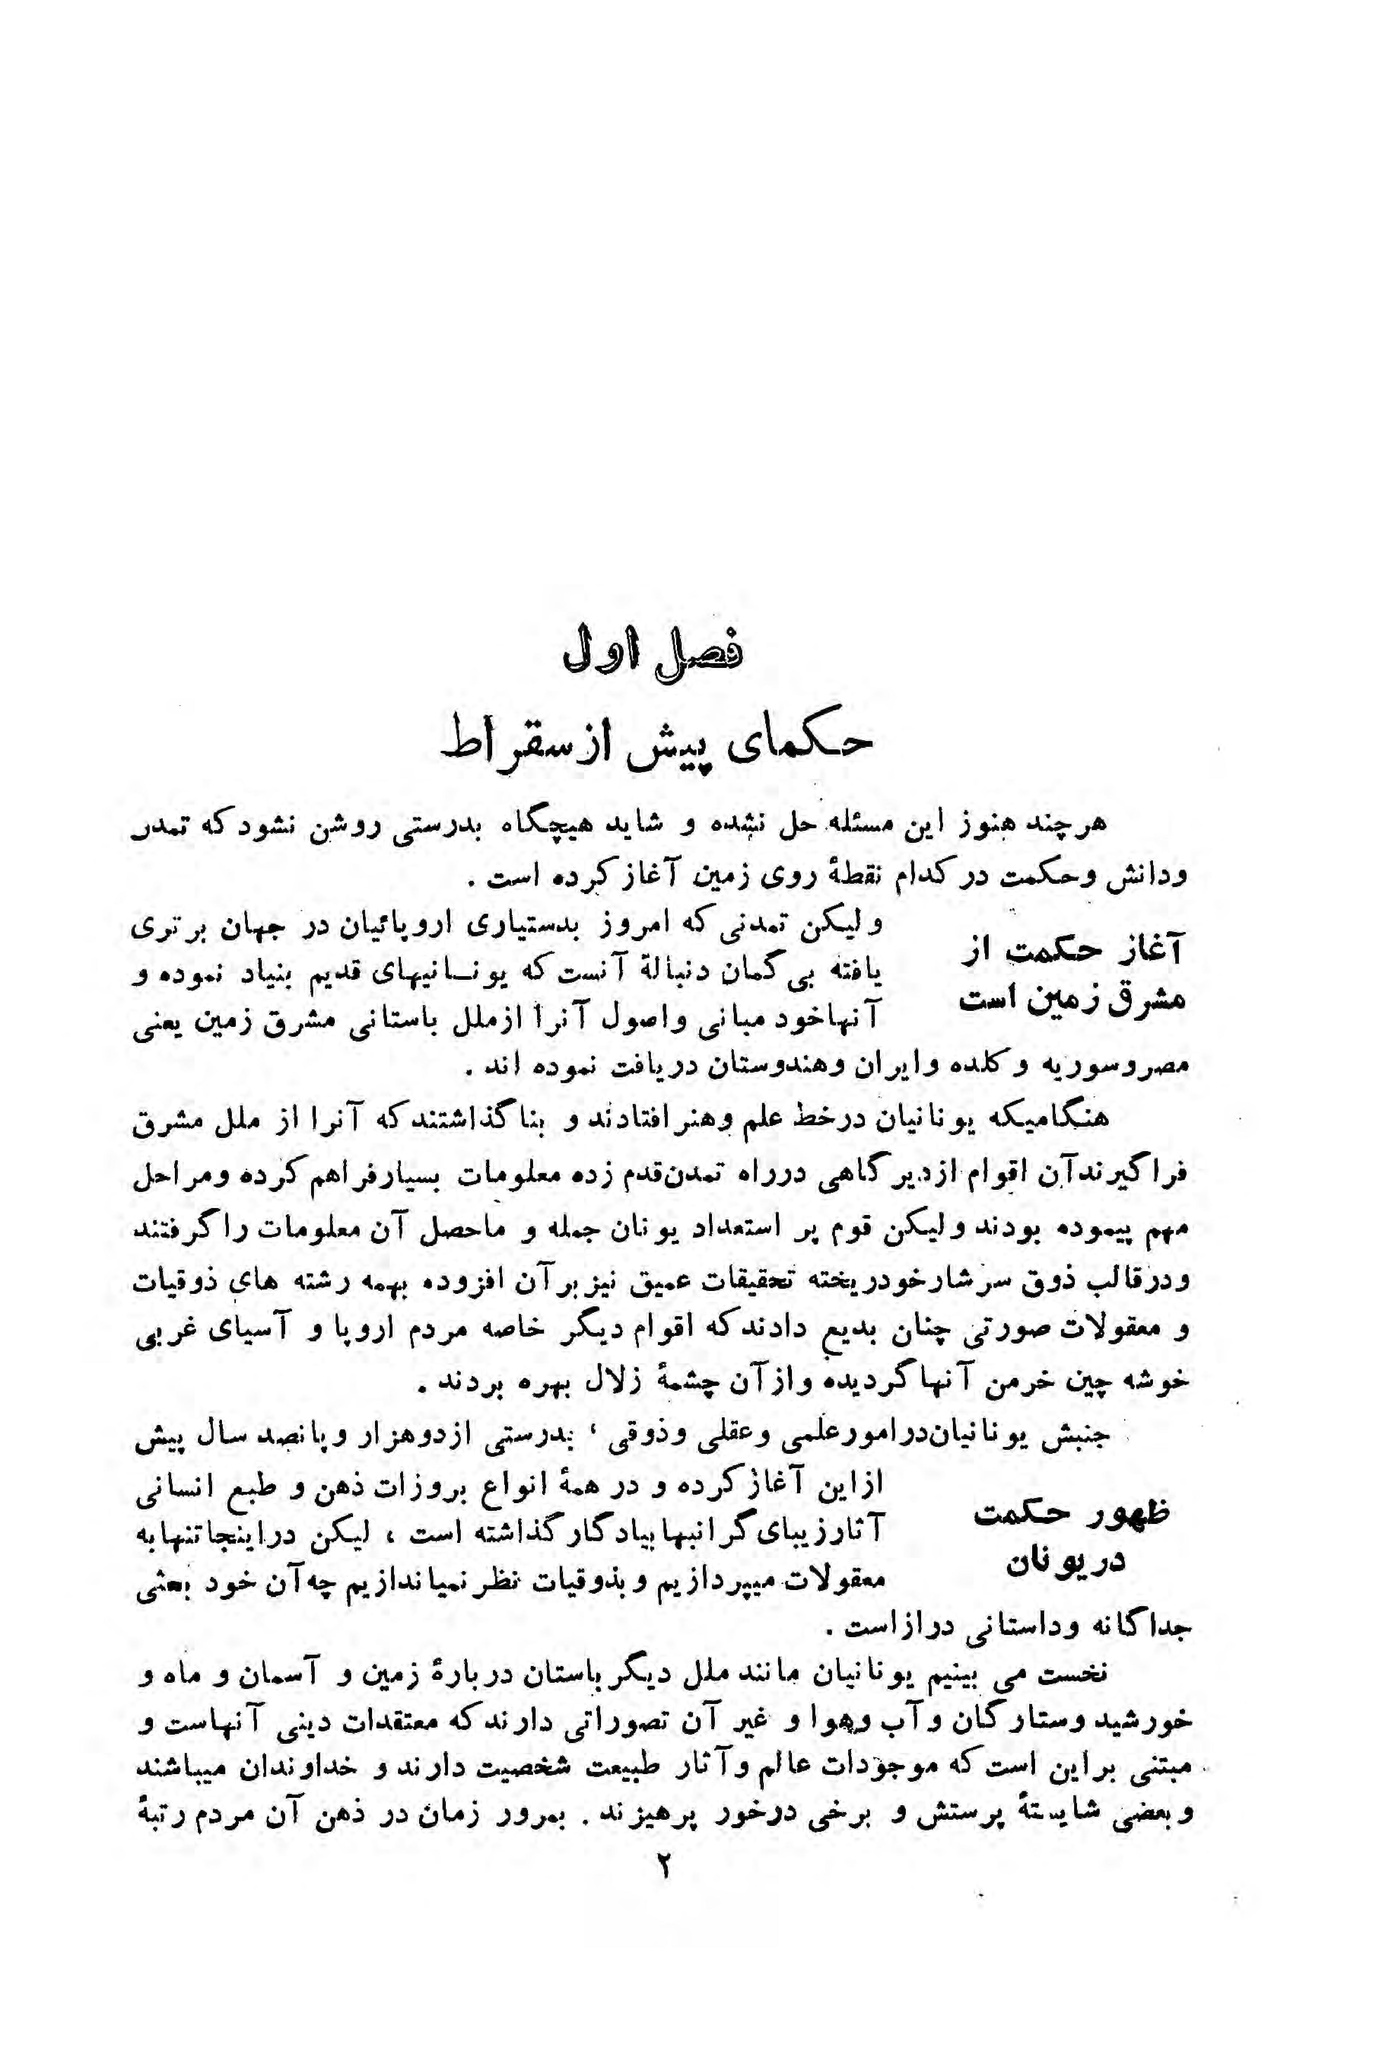 فصل اول
حکمای پیش از سقراط
هرچند هنوز این مسئله حل نشده و شاید هیچگاه بدرستی روشن نشود که تمدن
ودانش وحکمت در کدام نقطهٔ روی زمین آغاز کرده است .
آغاز حکمت از
مشرق زمین است
ولیکن تمدنی که امروز بدستیاری اروپائیان در جهان برتری
یافته بی گمان دنبالهٔ آنست که یونانیهای قدیم بنیاد نموده و
آنها خود مبانی واصول آنرا ازملل باستانی مشرق زمین یعنی
مصر وسوریه و کلده وایران وهندوستان دریافت نموده اند .
هنگامیکه یونانیان درخط علم وهنر افتادند و بنا گذاشتند که آنرا از ملل مشرق
فراگیرند آن اقوام ازدیرگاهی درراه تمدن قدم زده معلومات بسیار فراهم کرده ومراحل
مهم پیموده بودند ولیکن قوم پر استعداد یونان جمله و ماحصل آن معلومات را گرفتند
ودرقالب ذوق سرشار خود ریخته تحقیقات عمیق نیز برآن افزوده بهمه رشته های ذوقیات
و معقولات صورتی چنان بدیع دادند که اقوام دیگر خاصه مردم اروپا و آسیای غربی
خوشه چین خرمن آنها گردیده وازآن چشمهٔ زلال بهره بردند .
جنبش یونانیان در امور علمی وعقلی وذوقی ، بدرستی ازدوهزار وپانصد سال پیش
ظهور حکمت
در یونان
ازاین آغاز کرده و در همهٔ انواع بروزات ذهن و طبع انسانی
آثار زیبای گرانبها بیادگار گذاشته است ، لیکن دراینجا تنها به
معقولات میپردازیم وبذوقیات نظر نمیاندازیم چه آن خود بحثی
جداگانه وداستانی درازاست .
نخست می بینیم یونانیان مانند ملل دیگر باستان دربارهٔ زمین و آسمان و ماه و
خورشید وستارگان وآب وهوا و غیر آن تصوراتی دارند که معتقدات دینی آنهاست و
مبتنی براین است که موجودات عالم وآثار طبیعت شخصیت دارند و خداوندان میباشند
وبعضی شایستهٔ پرستش و برخی درخور پرهیزند . بمرور زمان در ذهن آن مردم رتبهٔ
۲